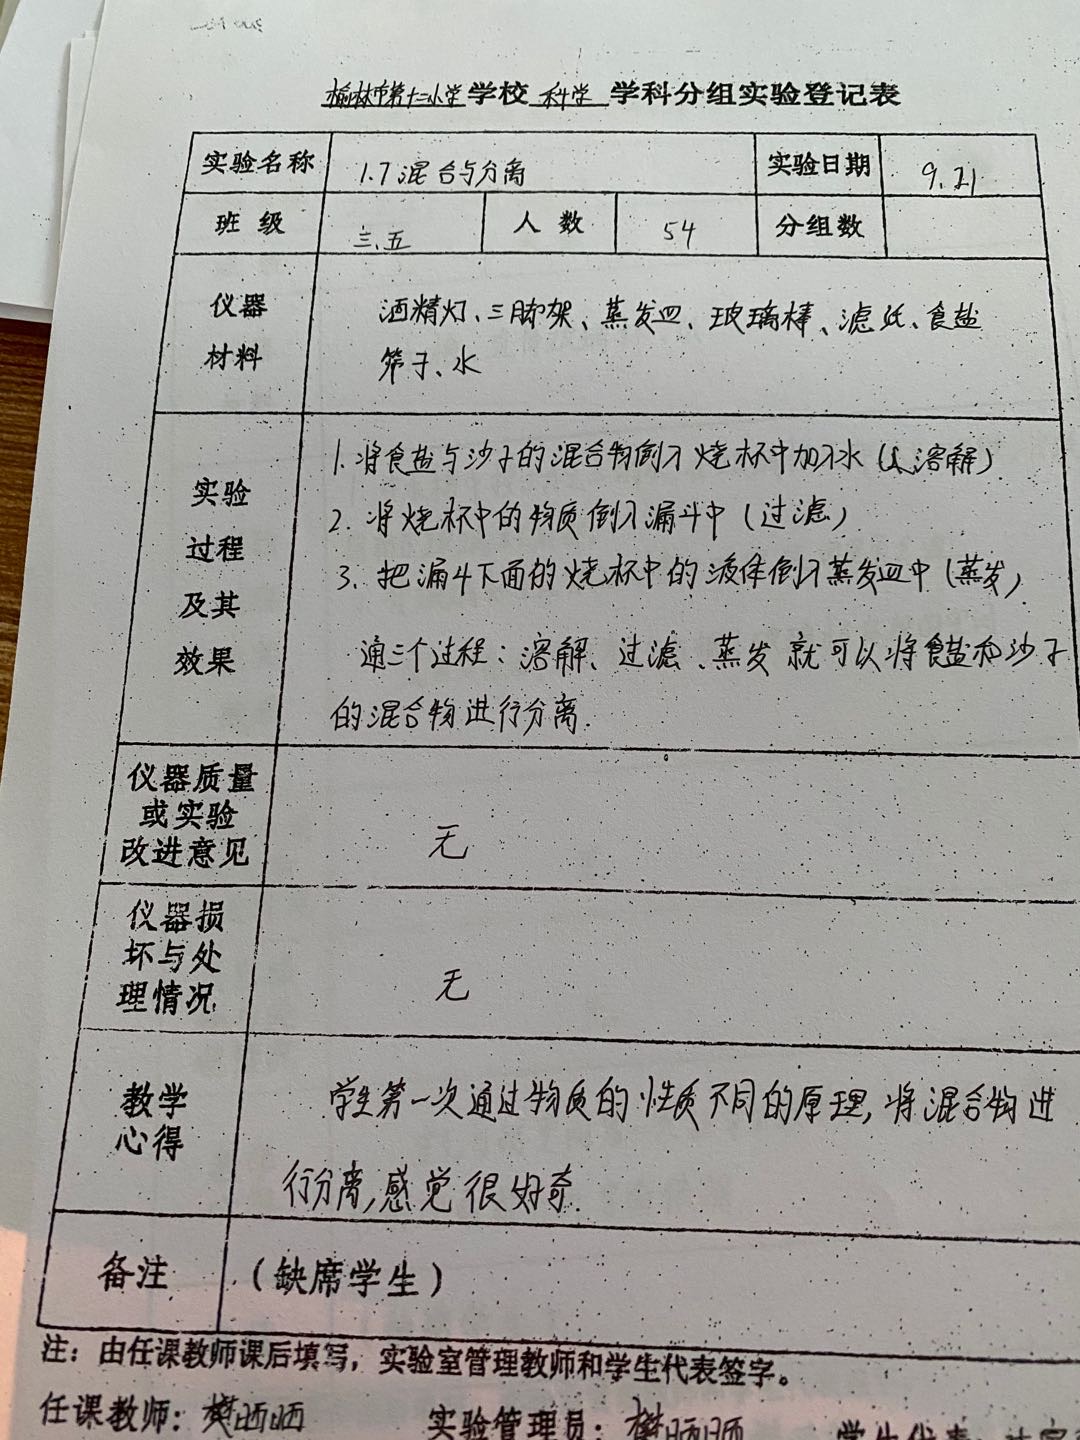 榆林市第十二小学 学校 科学 学科分组实验登记表
实验名称 1.7混合与分离 实验日期 9.21
班 级 三.五 人 数 54 分组数
仪器 材料
酒精灯、三脚架、蒸发皿、玻璃棒、滤纸、食盐
筛子、水
实验 过程 及其 效果
1.将食盐与沙子的混合物倒入烧杯中加入水(溶解)
2.将烧杯中的物质倒入漏斗中(过滤)
3.把漏斗下面的烧杯中的液体倒入蒸发皿中(蒸发)
通三个过程:溶解、过滤、蒸发就可以将食盐和沙子
的混合物进行分离.
仪器质量
或实验
改进意见
无
仪器损
坏与处
理情况
无
教学
心得
学生第一次通过物质的性质不同的原理,将混合物进
行分离,感觉很好奇.
备注 (缺席学生)
注:由任课教师课后填写,实验室管理教师和学生代表签字。
任课教师:樊晒晒 实验管理员:樊晒晒 学生代表: